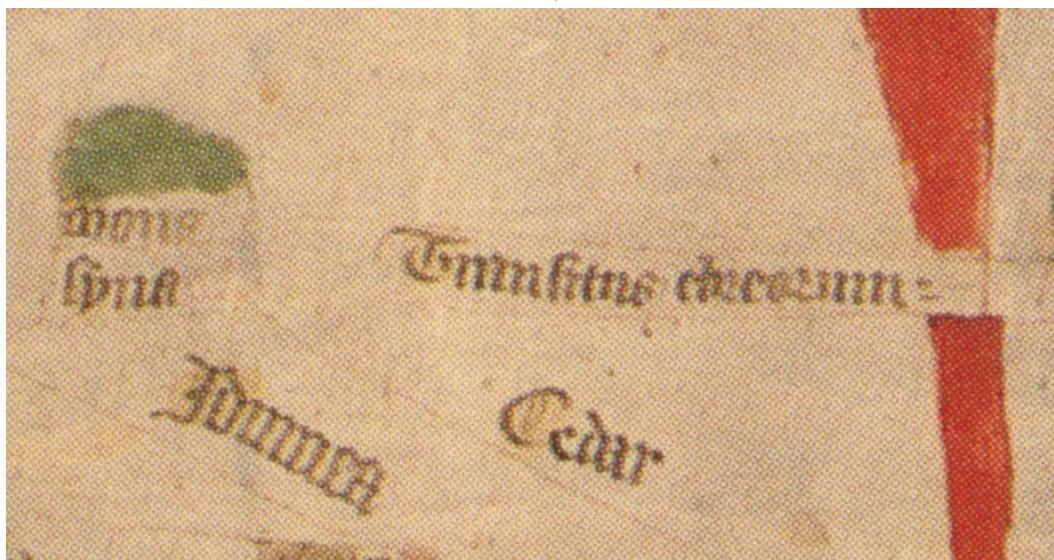 mons
synai
Transitus ebreorum
Idumea
Cedar